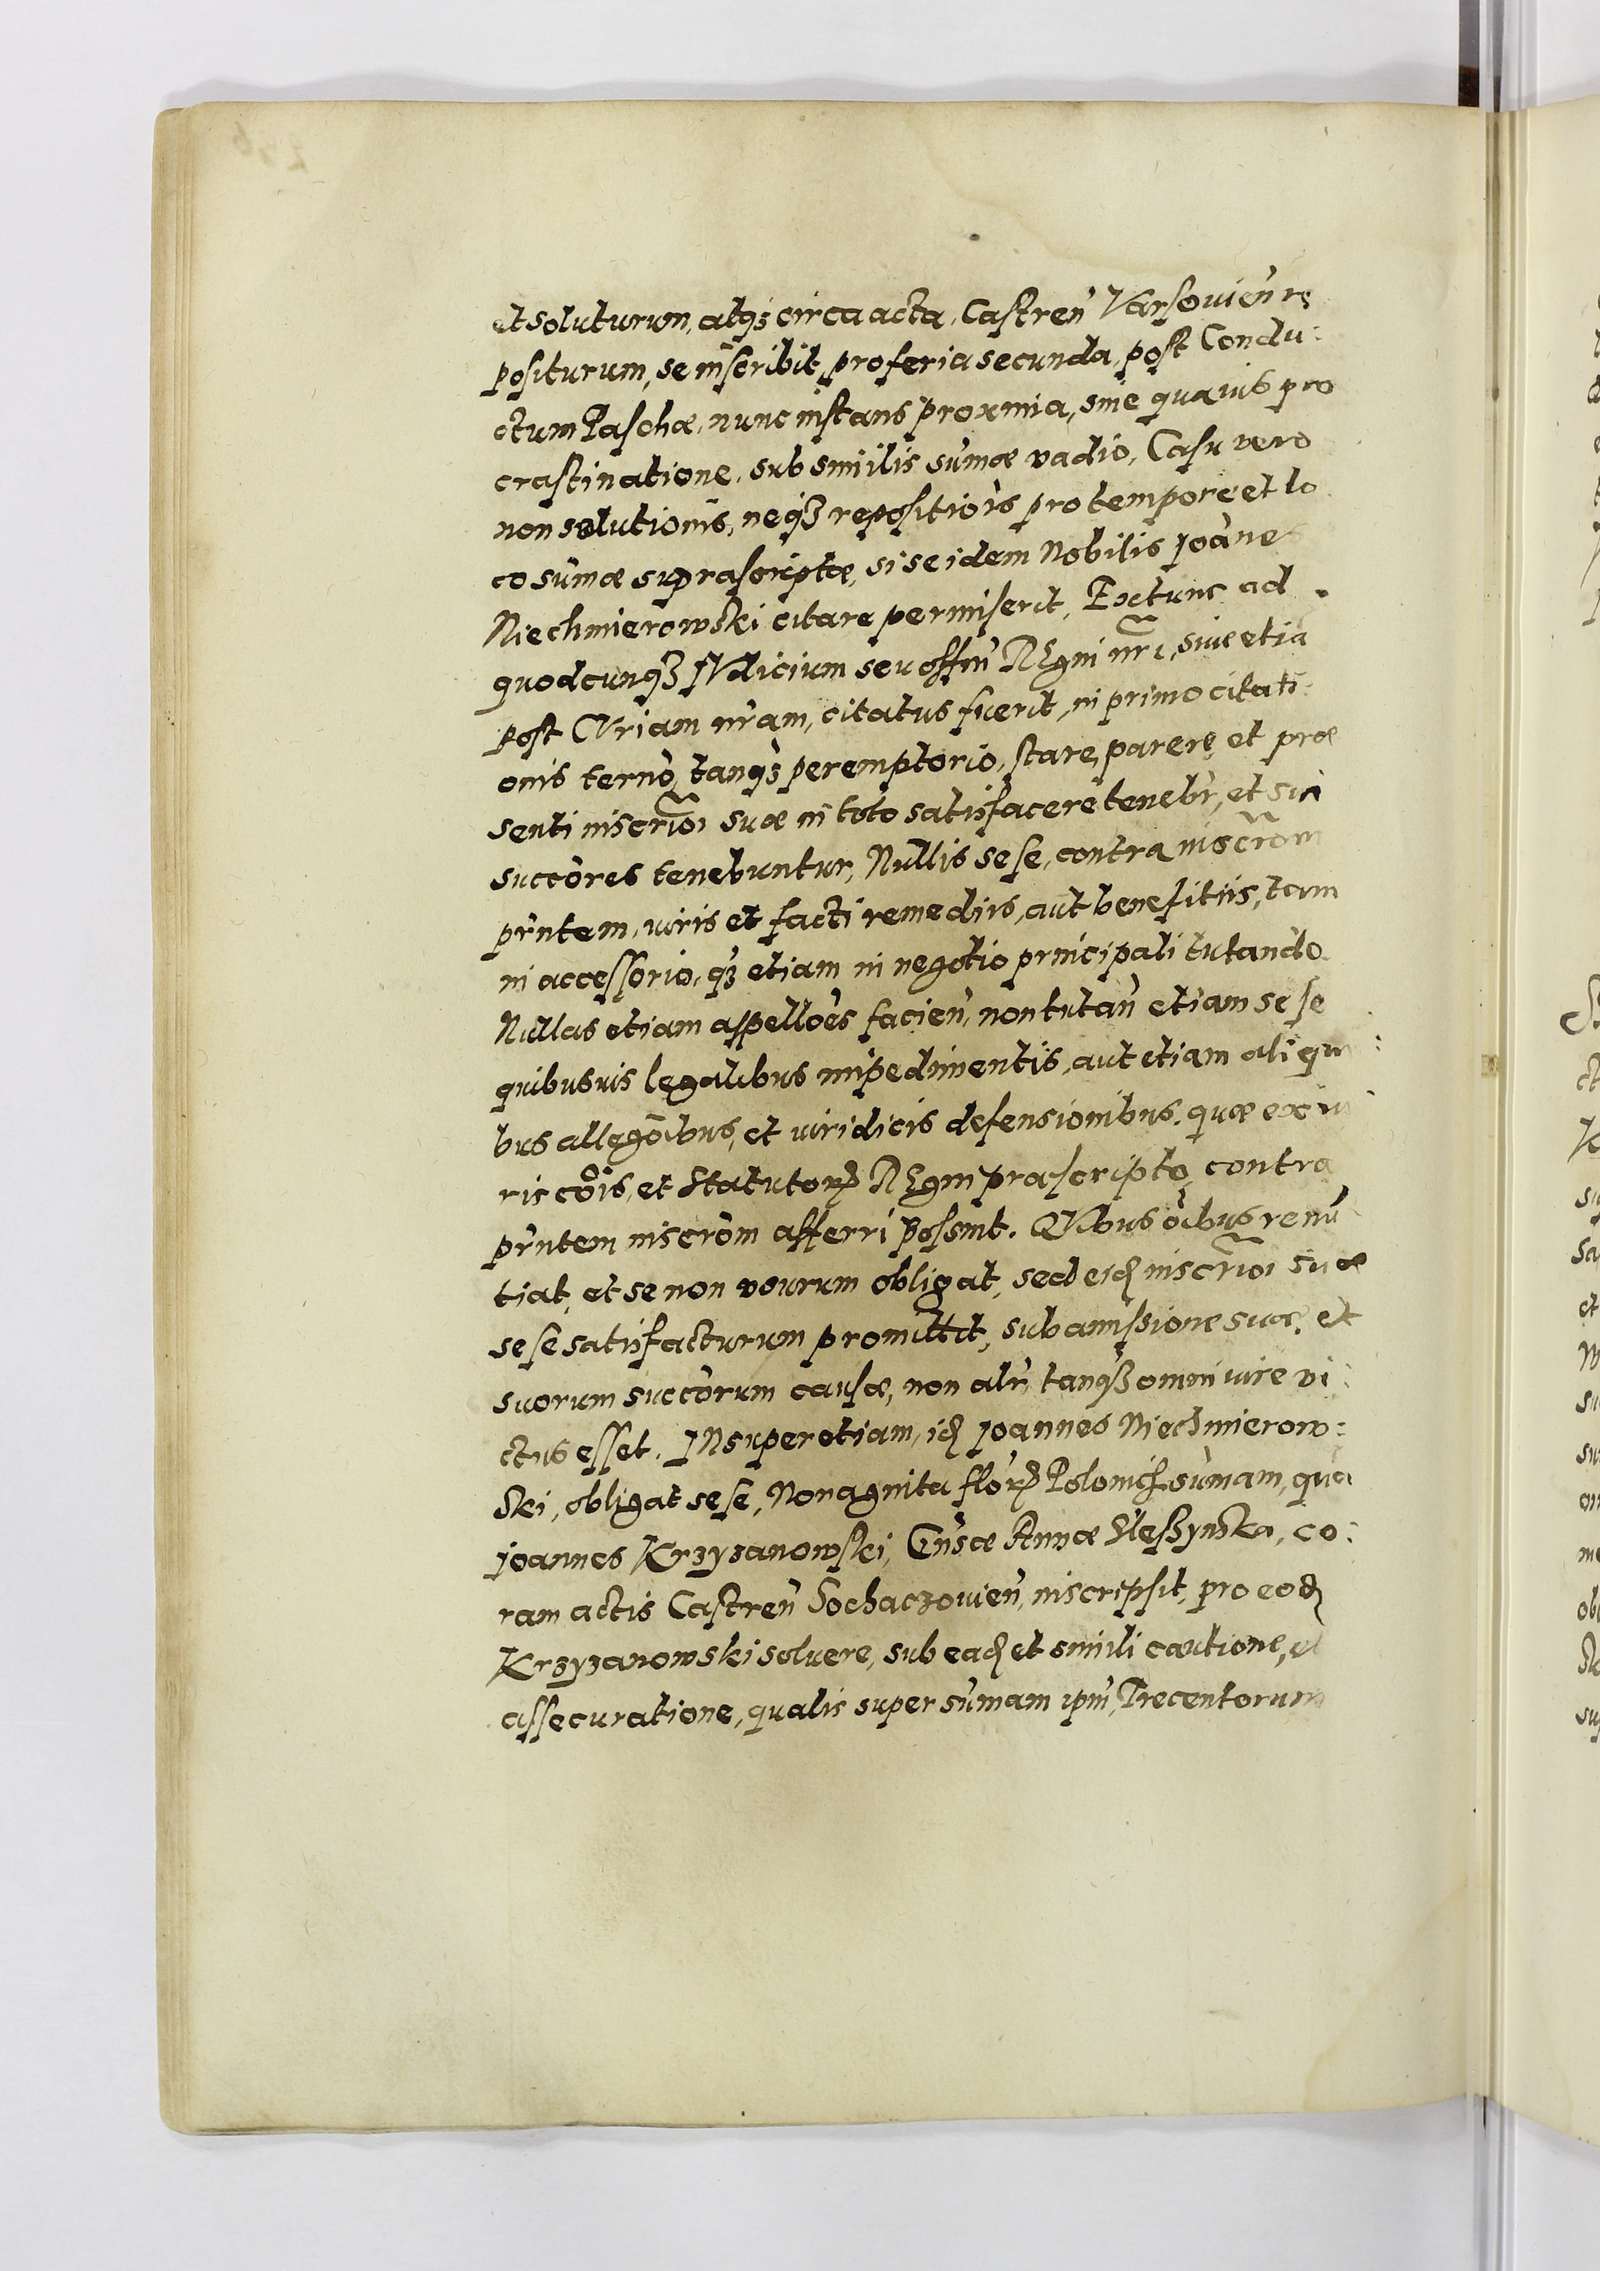 et soluturum, atq₃ circa acta, Castreñ Varsouieñ re
positurum, se inscribit, pro feria secunda, post Condu:
ctum Paschæ, nunc instans proxima, sine quauis pro
crastinatione, sub similis sum̃æ vadio, Casu vero
non solutionis, neq₃ repositiõis pro tempore et lo
co sum̃æ suprascriptæ, si se idem Nobilis Joãnes
Niechmierowski citare permiserit, Extunc ad
quodcunq₃ JVdicium seu offiũ REgni nr̃i, siue etiã
post CVriam nr̃am, citatus fuerit, in primo citati:
onis termõ, tanq₃ peremptorio, stare, parere, et præ
senti inscrip̃oi suæ in toto satisfacere tenebr̃, et sui
succõres tenebuntur, Nullis sese, contra inscr̃om
pr̃ntem, iuris et facti remediis, aut benefitiis, tam
in accessorio, q₃ etiam in negotio principali tutando.
Nullas etiam appellões facieñ, non tutañ etiam sese
quibusuis legalibus impedimentis, aut etiam aliqui:
bus allegõibus, et iuridicis defensionibus, quæ ex iu
ris cõis, et Statutoꝝ REgni præscripto, contra
pr̃ntem inscrõm afferri possint. QVibus õibus renũ
tiat, et se non vsurum obligat, sed eid̃ inscrip̃oi suæ
sese satisfacturum promittit, sub amissione suæ, et
suorum succõrum causæ, non alr̃, tanq₃ omni iure vi:
ctus esset. INsuper etiam, id̃ Joannes Niechmierow:
ski, obligat sese, Nonaginta flõꝝ Polonich̃ sum̃am, quã
Joannes Krzyzanowski, Gñsæ Annæ co:
ram actis Castreñ Sochaczouieñ, inscripsit, pro eod̃
Krzyzanowski soluere, sub ead̃ et simili cautione, et
assecuratione, qualis super sum̃am ip̃m, Trecentorum